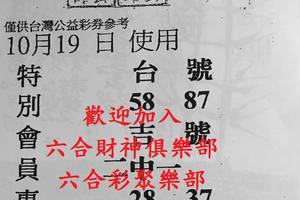 僅供台灣公益彩券參考
10月19日使用
特別會員專
台號
58 87
吉號
二中一
28 37
歡迎加入
六合財神俱樂部
六合彩聚樂部